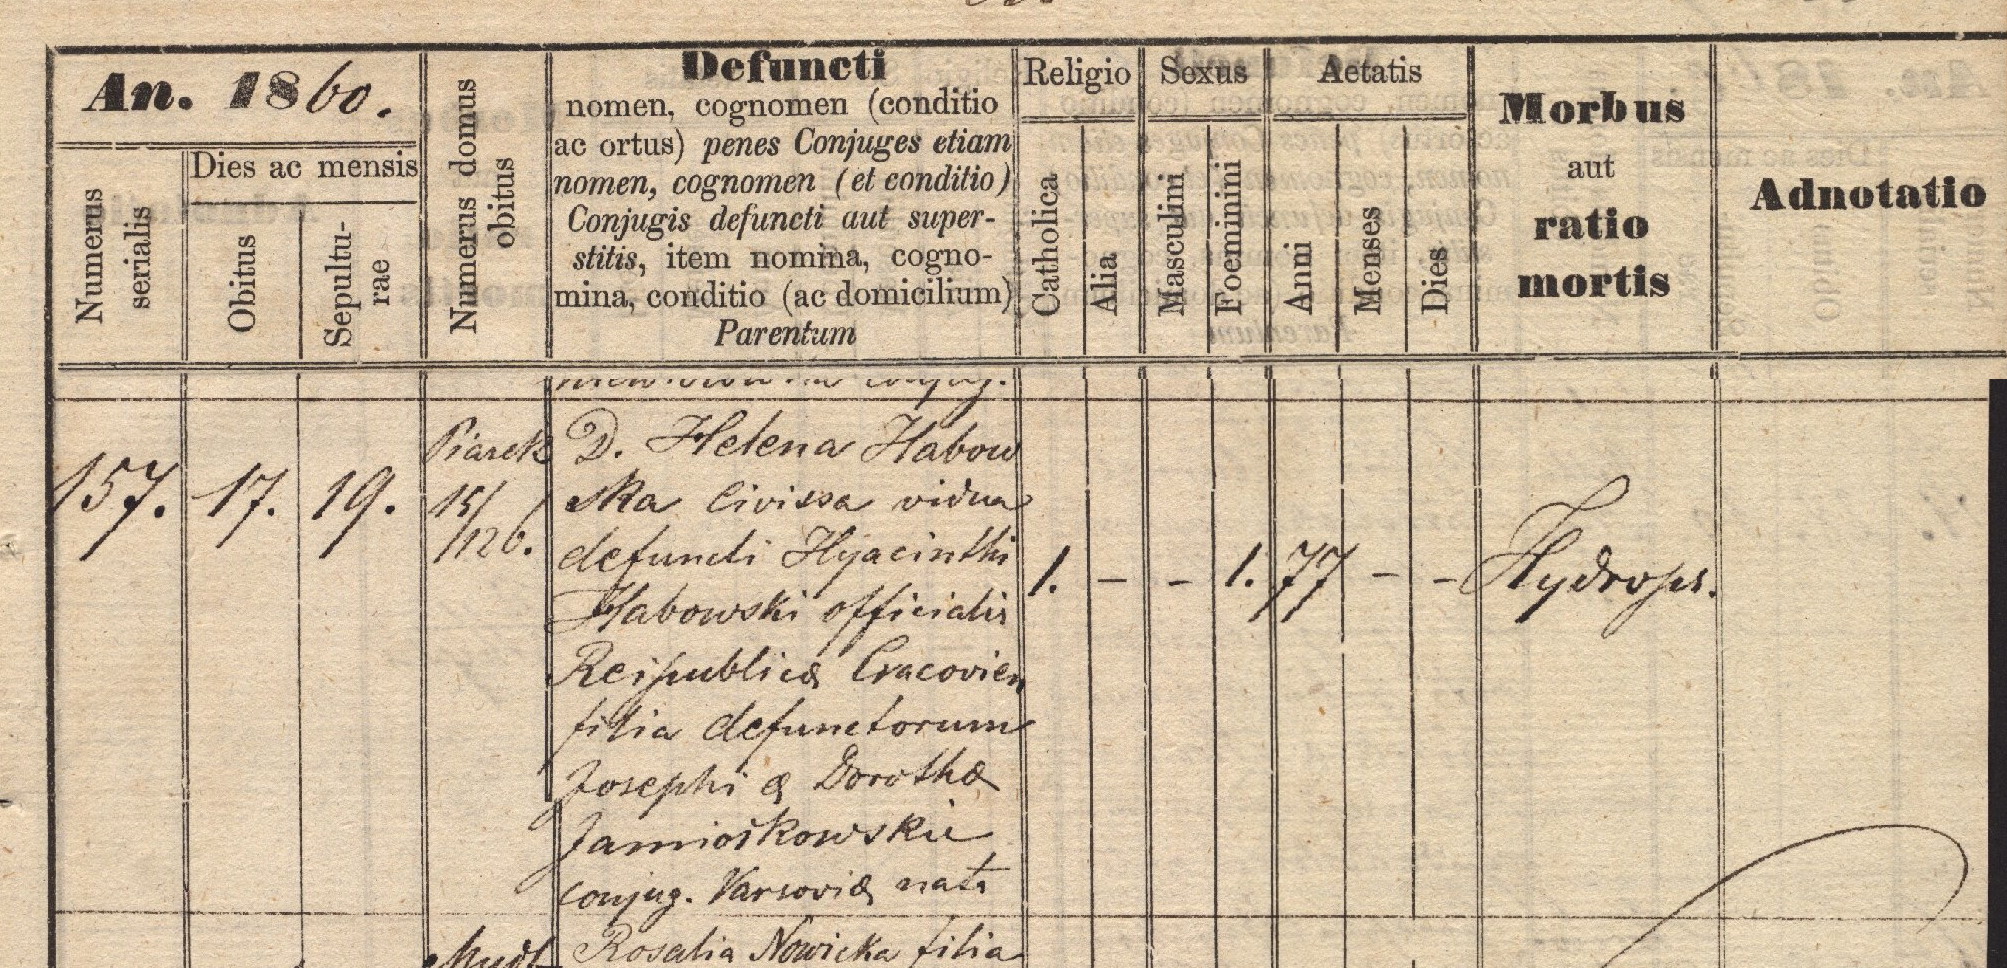 An. 1860.
Numerus serialis
Dies ac mensis
Obitus
Sepultu-
rae
Numerus domus
obitus
Defuncti
nomen, cognomen (conditio
ac ortus) penes Conjuges etiam
nomen, cognomen (et conditio)
Conjugis defuncti aut super-
stitis, item nomina, cogno-
mina, conditio (ac domicilium)
Parentum
Religio
Catholica
Alia
Sexus
Masculini
Foeminini
Aetatis
Anni
Menses
Dies
Morbus
aut
ratio
mortis
Adnotatio
conjug.
157. 17. 19.
Piarek
15/
/126.
D. Helena Habow
ska Civissa vidua
defuncti Hyjacinthi
Habowski officialis
Reipublicæ Cracovien
filia defunctorum
Josephi & Dorothæ
Jamiołkowskie
conjug. Varsoviæ nata
1. – – 1. 77 – – Hydrops.
Rosalia Nowicka filia